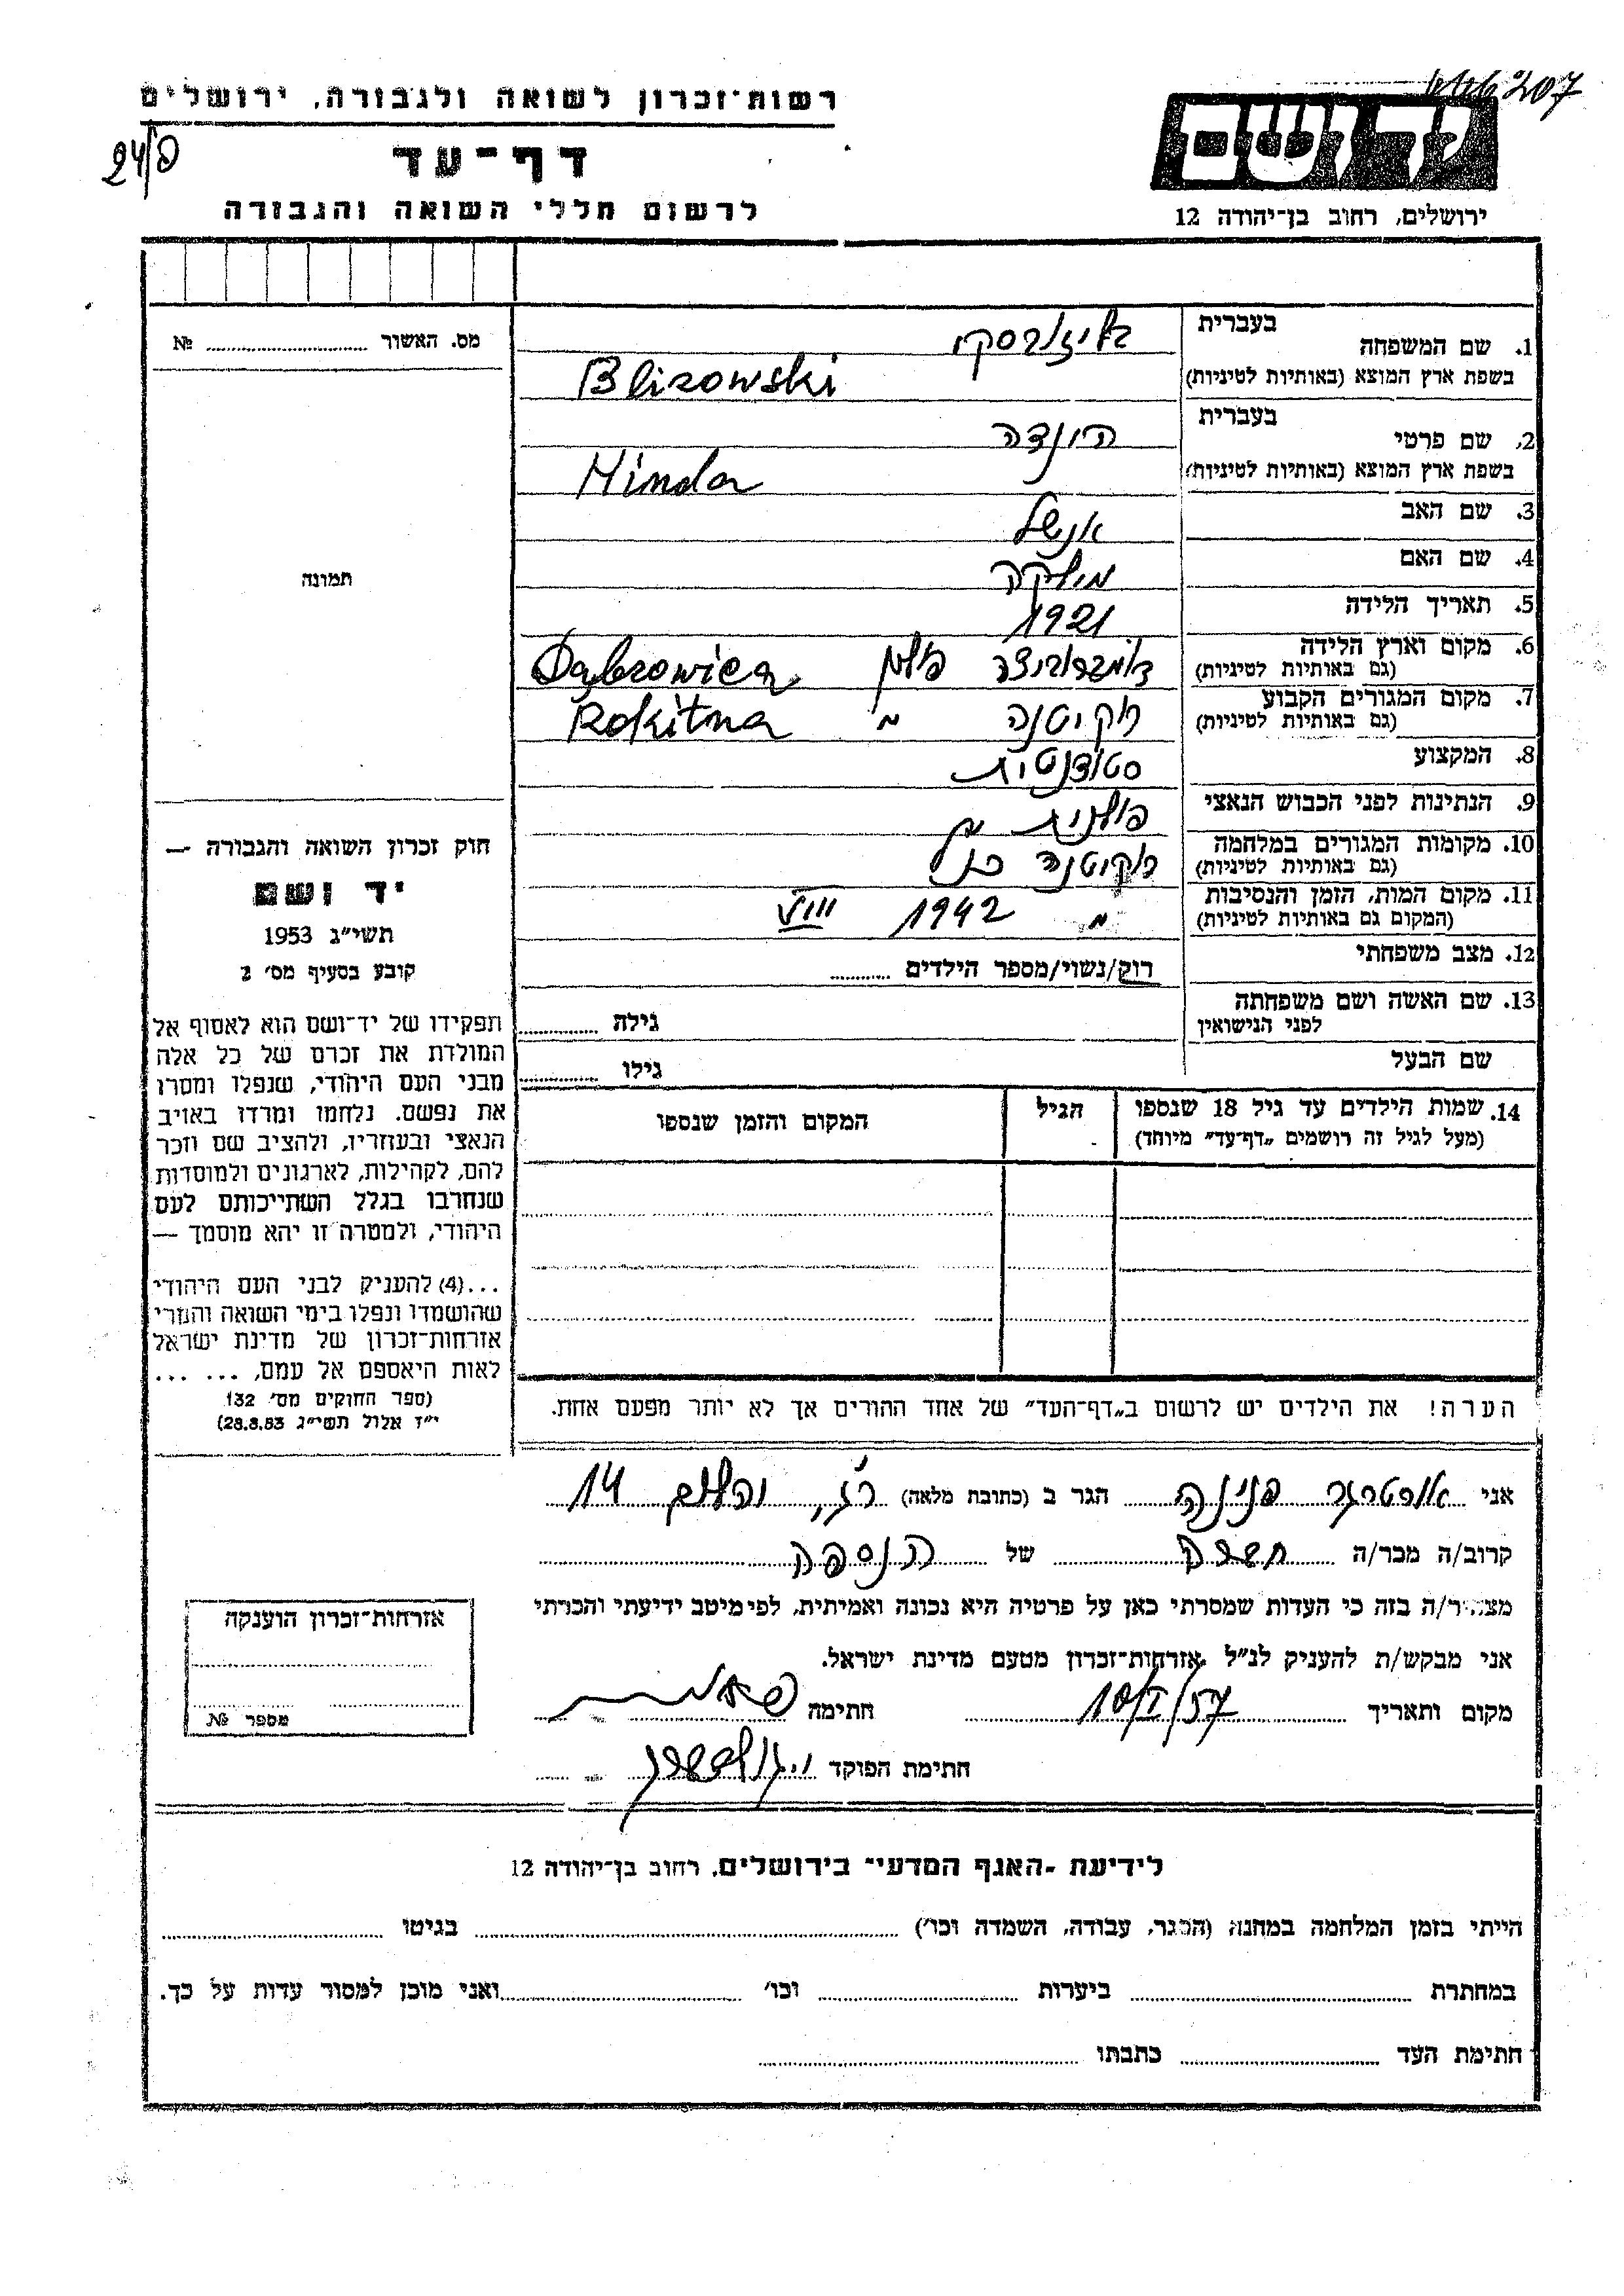 207
רשות־זכרון לשואה ולגבורה, ירושלים
דף־עד
לרשום חללי השואה והגבורה
ידושם
ירושלים, רחוב בן־יהודה 12
בעברית
1. שם המשפחה
בליזובסקי
בשפת ארץ המוצא (באותיות לטיניות)
Blizowski
בעברית
2. שם פרטי
הינדה
בשפת ארץ המוצא (באותיות לטיניות)
Hinda
3. שם האב
אנשל
4. שם האם
מולקה
5. תאריך הלידה
1921
6. מקום וארץ הלידה
(גם באותיות לטיניות)
דומברוביצה פולין Dąbrowica
7. מקום המגורים הקבוע
(גם באותיות לטיניות)
רוקיטנה Rokitna
8. המקצוע
סטודנטית
9. הנתינות לפני הכבוש הנאצי
פולנית
10. מקומות המגורים במלחמה
(גם באותיות לטיניות)
רוקיטנה כנ"ל
11. מקום המות, הזמן והנסיבות
(המקום גם באותיות לטיניות)
1942 VIII
12. מצב משפחתי
רוק/נשוי/מספר הילדים
13. שם האשה ושם משפחתה
לפני הנישואין
גילה
שם הבעל
גילו
14. שמות הילדים עד גיל 18 שנספו
(מעל לגיל זה רושמים „דף־עד" מיוחד)
הגיל
המקום והזמן שנספו
הערה! את הילדים יש לרשום ב„דף־העד" של אחד ההורים אך לא יותר מפעם אחת.
מס. האשור №
תמונה
חוק זכרון השואה והגבורה —
יד ושם
תשי"ג 1953
קובע בסעיף מס׳ 2
תפקידו של יד־ושם הוא לאסוף אל
המולדת את זכרם של כל אלה
מבני העם היהודי, שנפלו ומסרו
את נפשם. נלחמו ומרדו באויב
הנאצי ובעוזריו, ולהציב שם וזכר
להם, לקהילות, לארגונים ולמוסדות
שנחרבו בגלל השתייכותם לעם
היהודי, ולמטרה זו יהא מוסמך —
...(4) להעניק לבני העם היהודי
שהושמדו ונפלו בימי השואה והמרי
אזרחות־זכרון של מדינת ישראל
לאות היאספם אל עמם. ... ...
(ספר החוקים מס׳ 132
י"ז אלול תשי"ג 28.8.53)
אני פנינה הגר ב (כתובת מלאה) 14
קרוב/ה מכר/ה של הנספה
מצהיר/ה בזה כי העדות שמסרתי כאן על פרטיה היא נכונה ואמיתית, לפי מיטב ידיעתי והכרתי
אני מבקש/ת להעניק לנ"ל אזרחות־זכרון מטעם מדינת ישראל.
מקום ותאריך 10/I/57 חתימה
חתימת הפוקד
אזרחות־זכרון הוענקה
מספר №
לידיעת ־האגף המדעי־ בירושלים, רחוב בן־יהודה 12
הייתי בזמן המלחמה במחנה (הסגר, עבודה, השמדה וכו׳) בגיטו
במחתרת ביערות וכו׳ ואני מוכן למסור עדות על כך.
חתימת העד כתבתו